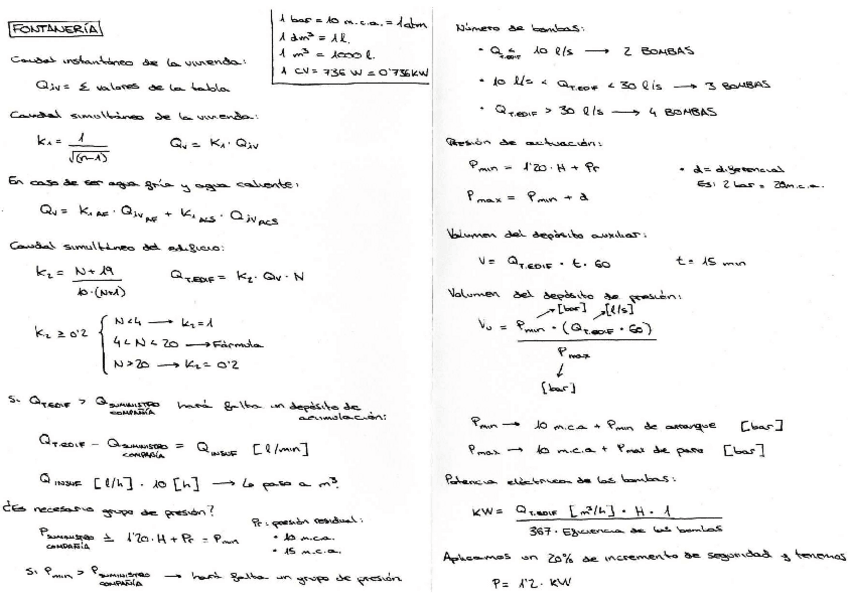 FONTANERÍA
1 bar = 10 m.c.a. = 1 atm
1 dm³ = 1 l.
1 m³ = 1000 l.
1 CV = 736 W = 0'736 KW
Caudal instantáneo de la vivienda:
Qiv = Σ valores de la tabla
Caudal simultáneo de la vivienda:
K₁ = 1 / √(n-1)    Qv = K₁ · Qiv
En caso de ser agua fría y agua caliente:
Qv = K₁AF · QivAF + K₁ACS · QivACS
Caudal simultáneo del edificio:
K₂ = N + 19 / 10·(N+1)    QT.EDIF = K₂ · Qv · N
K₂ ≥ 0'2 {
N<4 → K₂=1
4<N<20 → Fórmula
N>20 → K₂=0'2
Si QT.EDIF > QSUMINISTRO COMPAÑÍA hará falta un depósito de
acumulación:
QT.EDIF - QSUMINISTRO COMPAÑÍA = QINSUF [l/min]
QINSUF [l/h] · 10 [h] → Lo paso a m³.
¿Es necesario grupo de presión?
PSUMINISTRO COMPAÑÍA 1'20·H + Pr = Pmin
Pr: presión residual:
• 10 m.c.a.
• 15 m.c.a.
Si Pmin > PSUMINISTRO COMPAÑÍA → hará falta un grupo de presión
Número de bombas:
• QT.EDIF ≤ 10 l/s → 2 BOMBAS
• 10 l/s < QT.EDIF < 30 l/s → 3 BOMBAS
• QT.EDIF > 30 l/s → 4 BOMBAS
Presión de actuación:
Pmin = 1'20·H + Pr
• d = diferencial
Ej: 2 bar = 20 m.c.a.
Pmax = Pmin + d
Volumen del depósito auxiliar:
V = QT.EDIF · t · 60    t = 15 min
Volumen del depósito de presión:
[bar] [l/s]
Vu = Pmin · (QT.EDIF · 60)
Pmax
[bar]
Pmin → 10 m.c.a + Pmin de arranque [bar]
Pmax → 10 m.c.a + Pmax de paro [bar]
Potencia eléctrica de las bombas:
KW = QT.EDIF [m³/h] · H · 1
367 · Eficiencia de las bombas
Aplicamos un 20% de incremento de seguridad y tenemos
P = 1'2 · KW